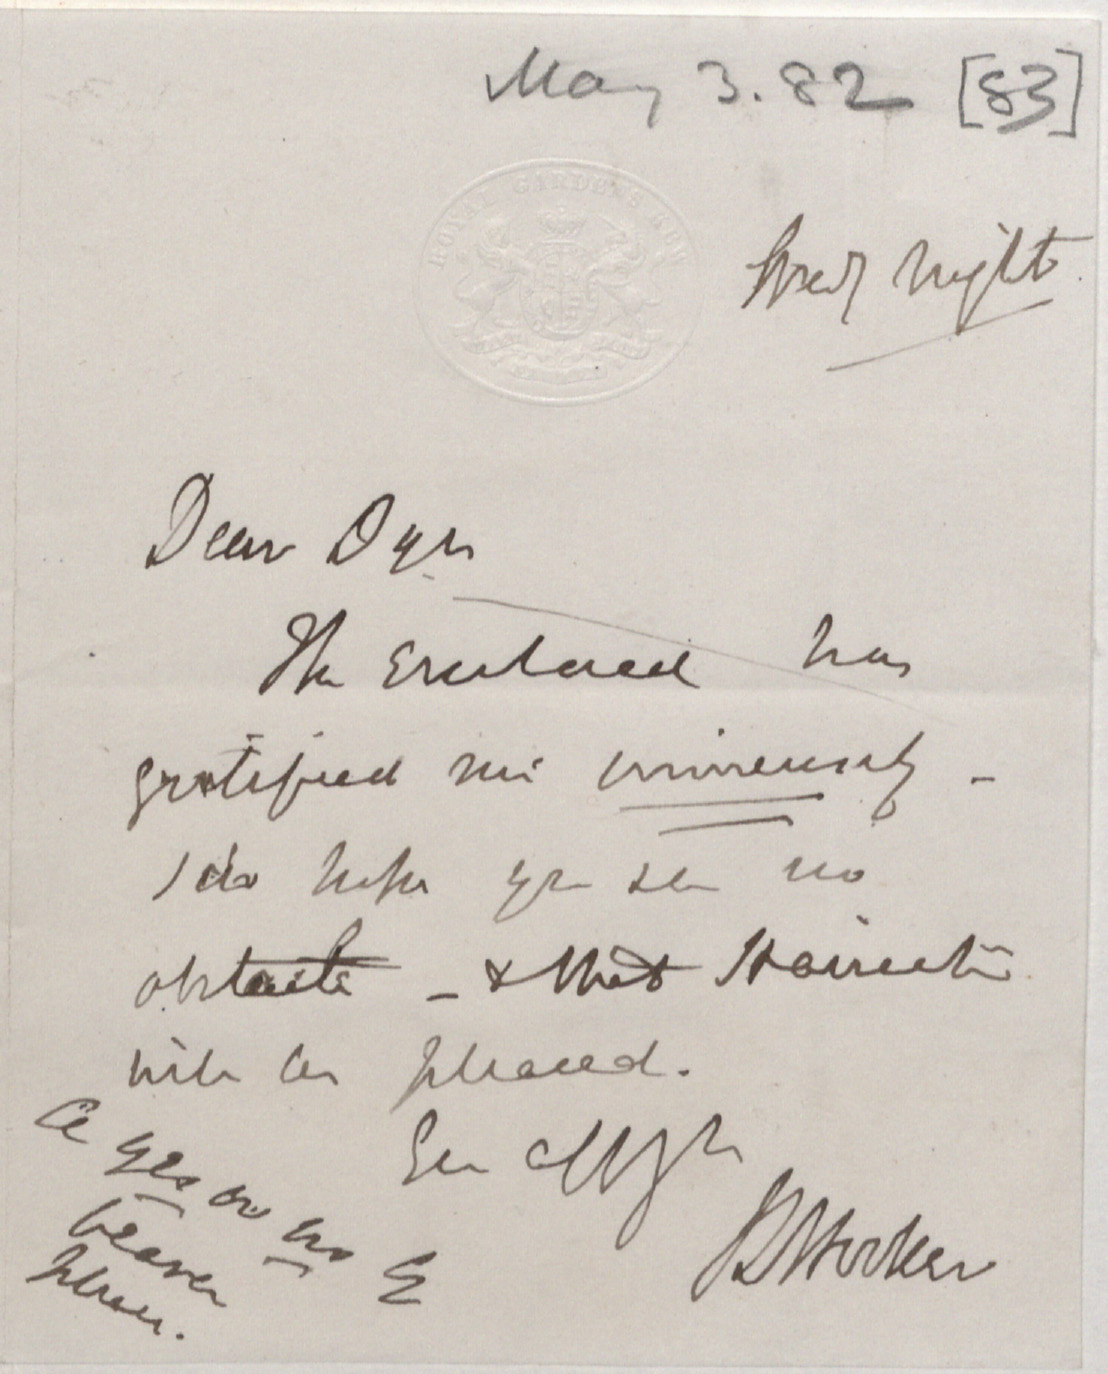 May 3. 82 [83]
ROYAL GARDENS KEW
Wedy night
Dear Dyer
The Enclosed has
gratified me immensely -
I do hope you see no
obstacle - & that Harriet
will be pleased.
Ever aff yrs
JDHooker
A yes or no by
bearer
please.